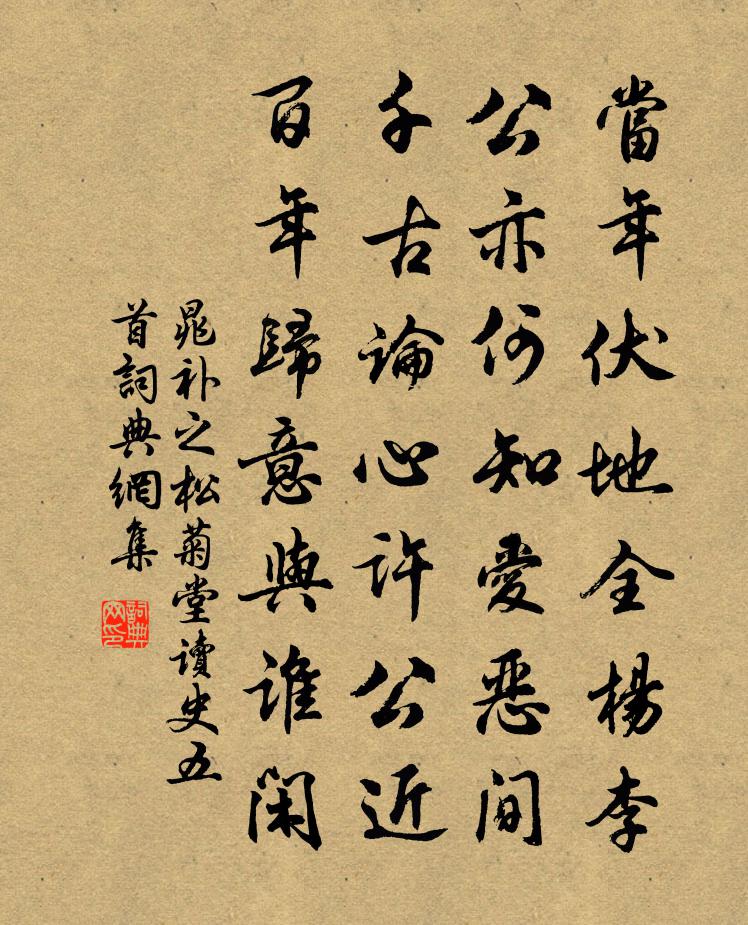 當年伏地全楊李
公亦何知愛惡間
千古論心許公近
百年歸意與誰閑
晁补之松菊堂讀史五
首詞典網集
詞典
网印